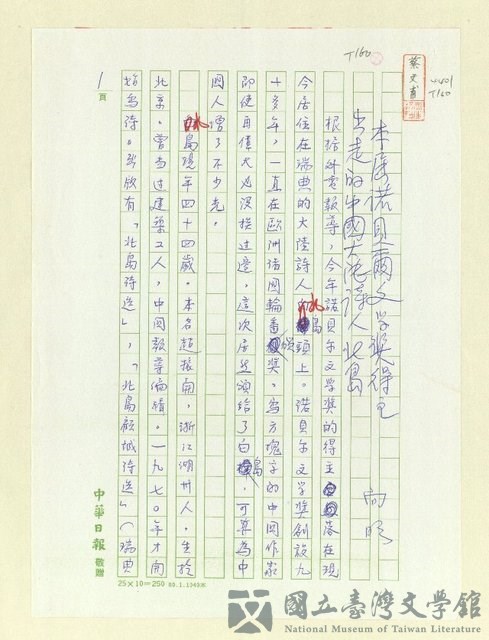 T160
蔡文甫
T160
本屆諾貝爾文學獎得主
出走的中國大陸詩人北島
向明
根據外電報導,今年諾貝尔文學獎的得主落在現
今居住在瑞典的大陸詩人北島頭上。諾貝尔文學獎創設九
十多年,一直在歐洲諸國輪番頒獎,寫方塊字的中国作家
即使再偉大必沒挨过邊,這次居然頒給了白島,可算為中
國人增了不少光。
北島現年四十四歲。本名趙振開,浙江湖州人,生於
北京,曾当过建築工人,中国報導編輯。一九七0年才開
始寫詩。出版有「北島詩选」,「北島顧城诗选」(瑞典
1頁
中華日報 敬贈
25×10=250
國立臺灣文學館
National Museum of Taiwan Literature